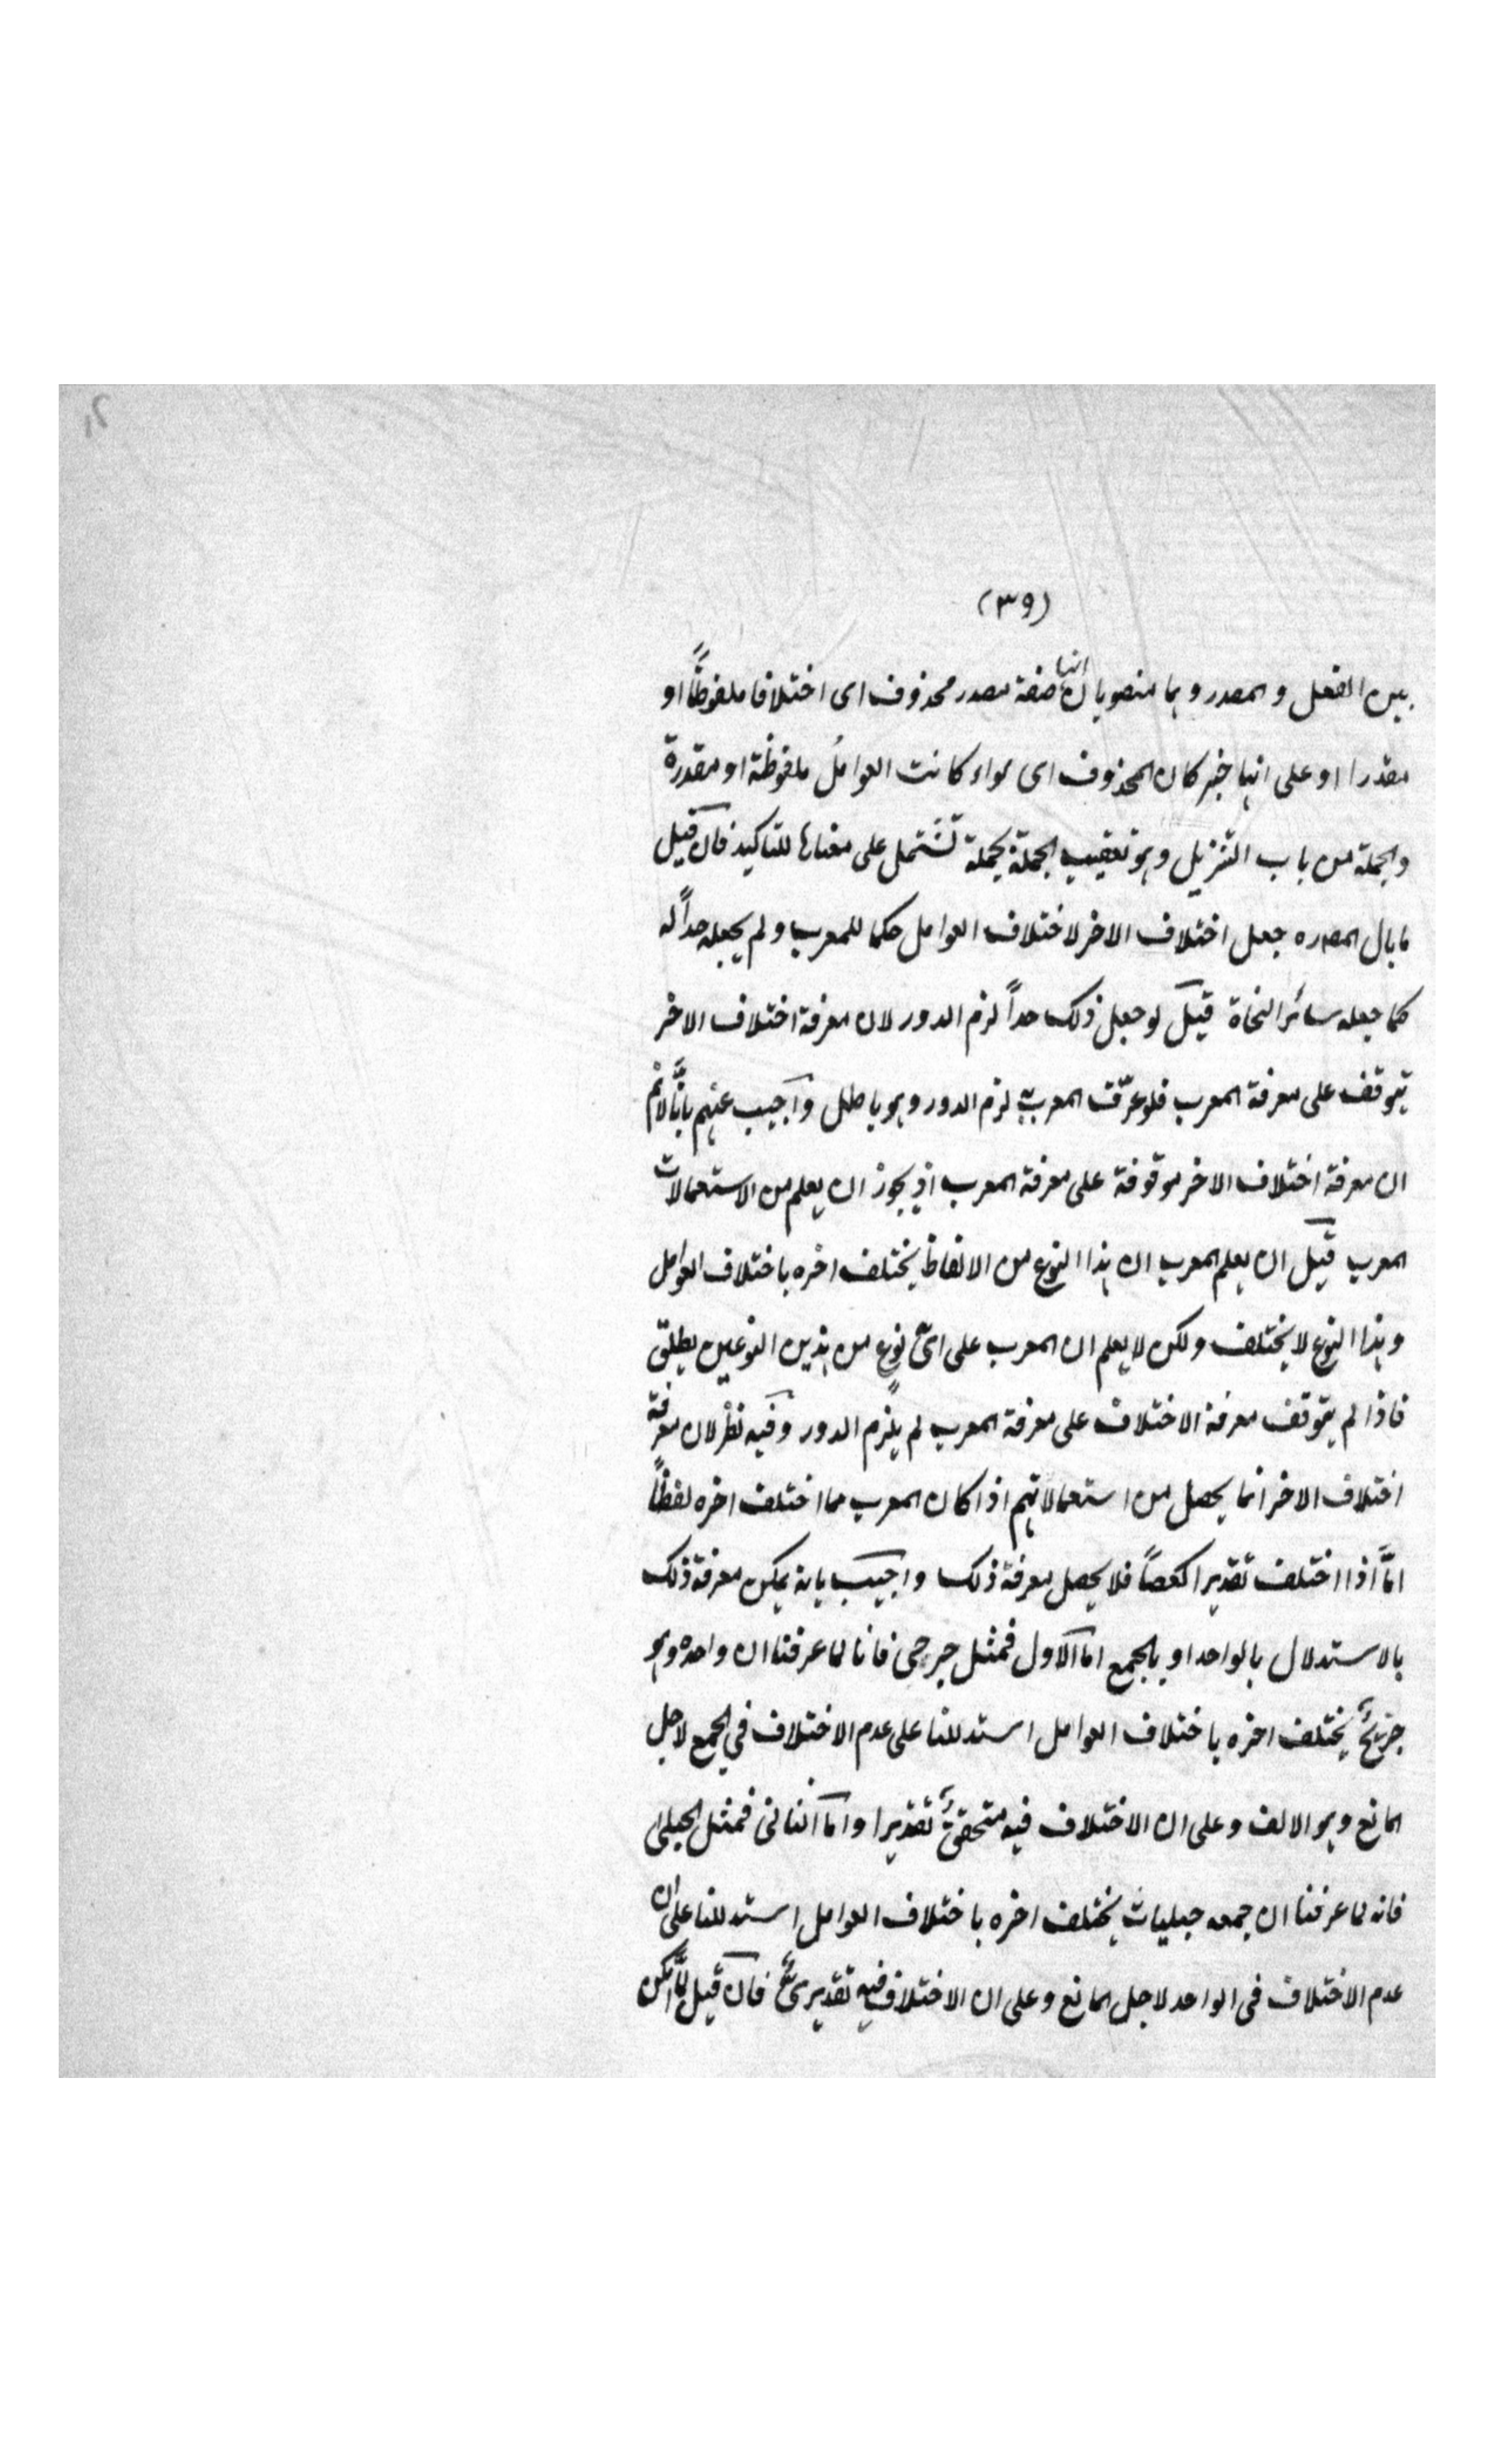 (٣٩)
بين الفعل والمصدر وهما منصوبان انهما صفة مصدر محذوف اى اختلافا ملفوظًا او
مقدرا او على انهما خبر كان المحذوف اى سواء كانت العواملُ ملفوظة او مقدرة
والجملة من باب التنزيل وهو تعقيب الجملة بجملة تشتمل على معناها للتاكيد فان قيل
ما بال المص ره جعل اختلاف الاخر لاختلاف العوامل حكما للمعرب ولم يجعله حداً له
كما جعله سائر النحاة قيل لو جعل ذلك حداً لزم الدور لان معرفة اختلاف الاخر
يتوقف على معرفة المعرب فلو عرّفت المعرب به لزم الدور وهو باطل واجيب عنهم بانّا لا نم
ان معرفة اختلاف الاخر موقوفة على معرفة المعرب اذ يجوز ان يعلم من الاستعمالات
المعرب قيل ان يعلم المعرب ان هذا النوع من الالفاظ يختلف اخره باختلاف العوامل
وهذا النوع لا يختلف ولكن لا يعلم ان المعرب على اىّ نوعٍ من هذين النوعين يطلق
فاذا لم يتوقف معرفة الاختلاف على معرفة المعرب لم يلزم الدور وفيه نظر لان معرفة
اختلاف الاخر انما يحصل من استعمالاتهم اذا كان المعرب مما اختلف اخره لفظاً
امّا اذا اختلف تقديرا كعصاً فلا يحصل معرفة ذلك واجيب بانه يمكن معرفة ذلك
بالاستدلال بالواحد او بالجمع اما الاول فمثل جرحى فانا لما عرفنا ان واحده وهو
جريحٌ يختلف اخره باختلاف العوامل استدللنا على عدم الاختلاف في الجمع لاجل
المانع وهو الالف وعلى ان الاختلاف فيه متحققٌ تقديرا واما الثانى فمثل الحبلى
فانه لما عرفنا ان جمعه حبليات يختلف اخره باختلاف العوامل استدللنا على ان
عدم الاختلاف فى الواحد لاجل المانع وعلى ان الاختلاف فيه تقديرىٌّ فان قيل لمّا امكن